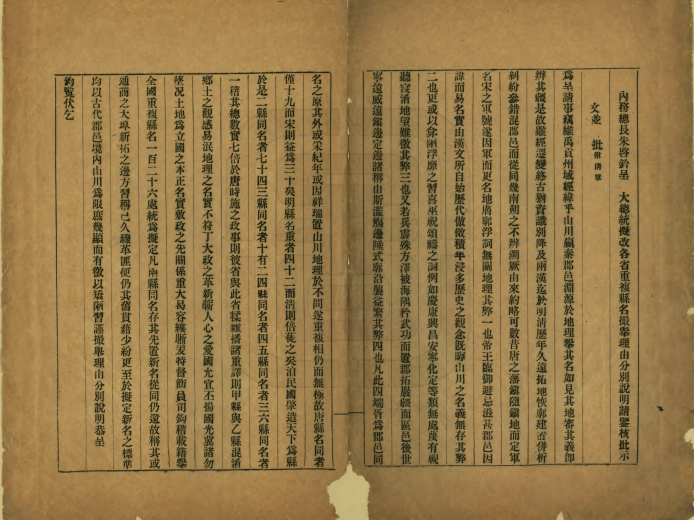 內務總長朱啓鈐呈 大總統擬改各省重複縣名撮舉理由分別說明請鑒核批示
文並 批附清單
爲呈請事竊維禹貢州域經緯乎山川嬴秦郡邑淵源於地理舉其名如見其地審其義卽
辨其疆是故雖經遷變終古猶資識別降及兩漢迄於明清歷年久遠拓地恢廓建置併析
糾紛參錯混郡邑而從同幾南朔之不辨溯厥由來約略可數昔唐之藩鎭隨鎭地而定軍
名宋之軍號遂因軍而更名地膚廓浮詞無關地理其弊一也帝王臨御避忌滋甚郡邑因
諱而易名實由漢文所自始歷代倣傚積半浸多歷史之觀念旣晦山川之名義無存其弊
二也更或以弇陋浮靡之習喜巫祝頌禱之詞例如慶康興昌安寧化定等類無處蔑有視
聽寖淆地望難徵其弊三也又若兵審殊方澤被海隅矜武功而置郡拓嚴疆而區邑後世
寧遠威遠鎭邊定邊諸稱由斯濫觴邊陲式廓沿襲益繁其弊四也凡此四端皆爲郡邑同
名之原其外或采紀年或因祥瑞置山川地理於不問遂重複相仍而無極故唐縣名同者
僅十九而宋則益爲三十矣明縣名重者四十二而清則倍蓰之矣洎民國肇造天下爲縣
於是二縣同名者七十四三縣同名者十有二四縣同名者四五縣同名者三六縣同名者
一稽其總數實七倍於唐時施之政事則彼省與此省樣雜播諸重譯則甲縣與乙縣混淆
鄉土之觀感易泯地理之名實不符丁大政之革新繫人心之愛國尤宜丕揚國光冀諸勿
墜况土地爲立國之本正名實敷政之先關係重大易容緩謄爰督飭員司鉤稽載籍舉
全國重複縣名一百二十六處統爲擬定凡兩縣同名存其先置新名從同仍還故稱其或
通商之大埠新拓之邊方習稱已久纚革匪便仍其舊貫藉少紛更至於擬定新名之標準
均以古代郡邑境內山川爲限庶幾顯而有徵以矯陋習謹撮舉理由分別說明恭呈
鈞覽伏乞